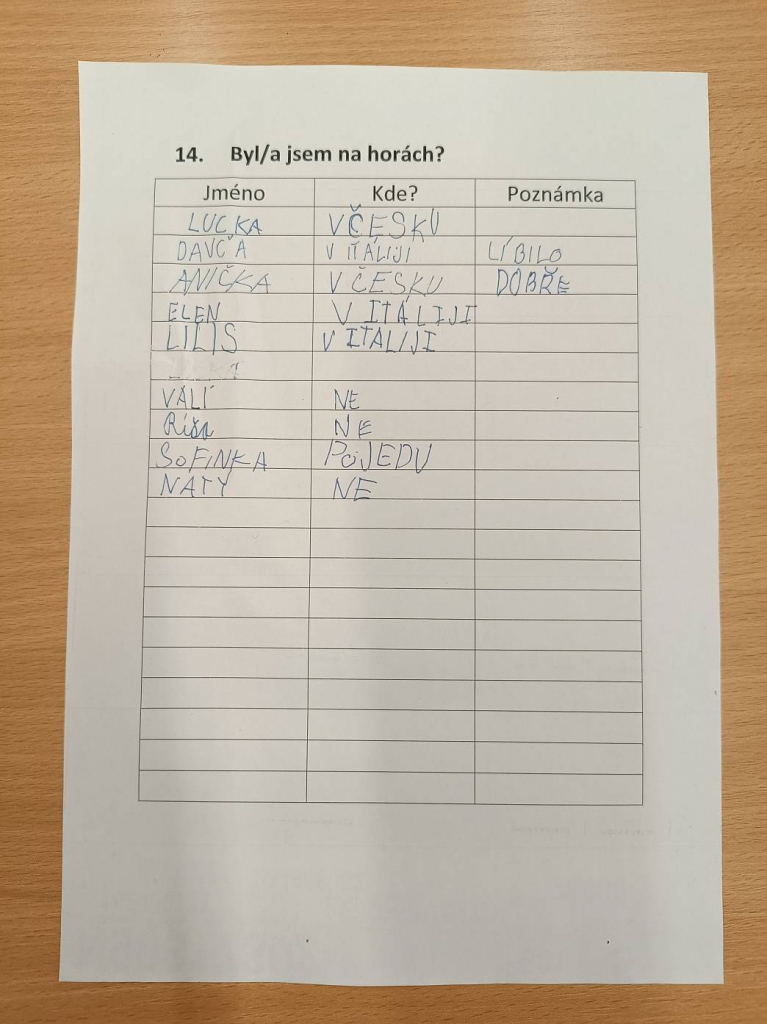 14. Byl/a jsem na horách?
Jméno Kde? Poznámka
LUCKA VČESKU
DAVČA V ITÁLIJI LÍBILO
ANIČKA V ČESKU DOBŘE
ELEN V ITÁLIJI
LILIS V ITALIJI
VALÍ NE
Ríša NE
SOFINKA POJEDU
NATY NE